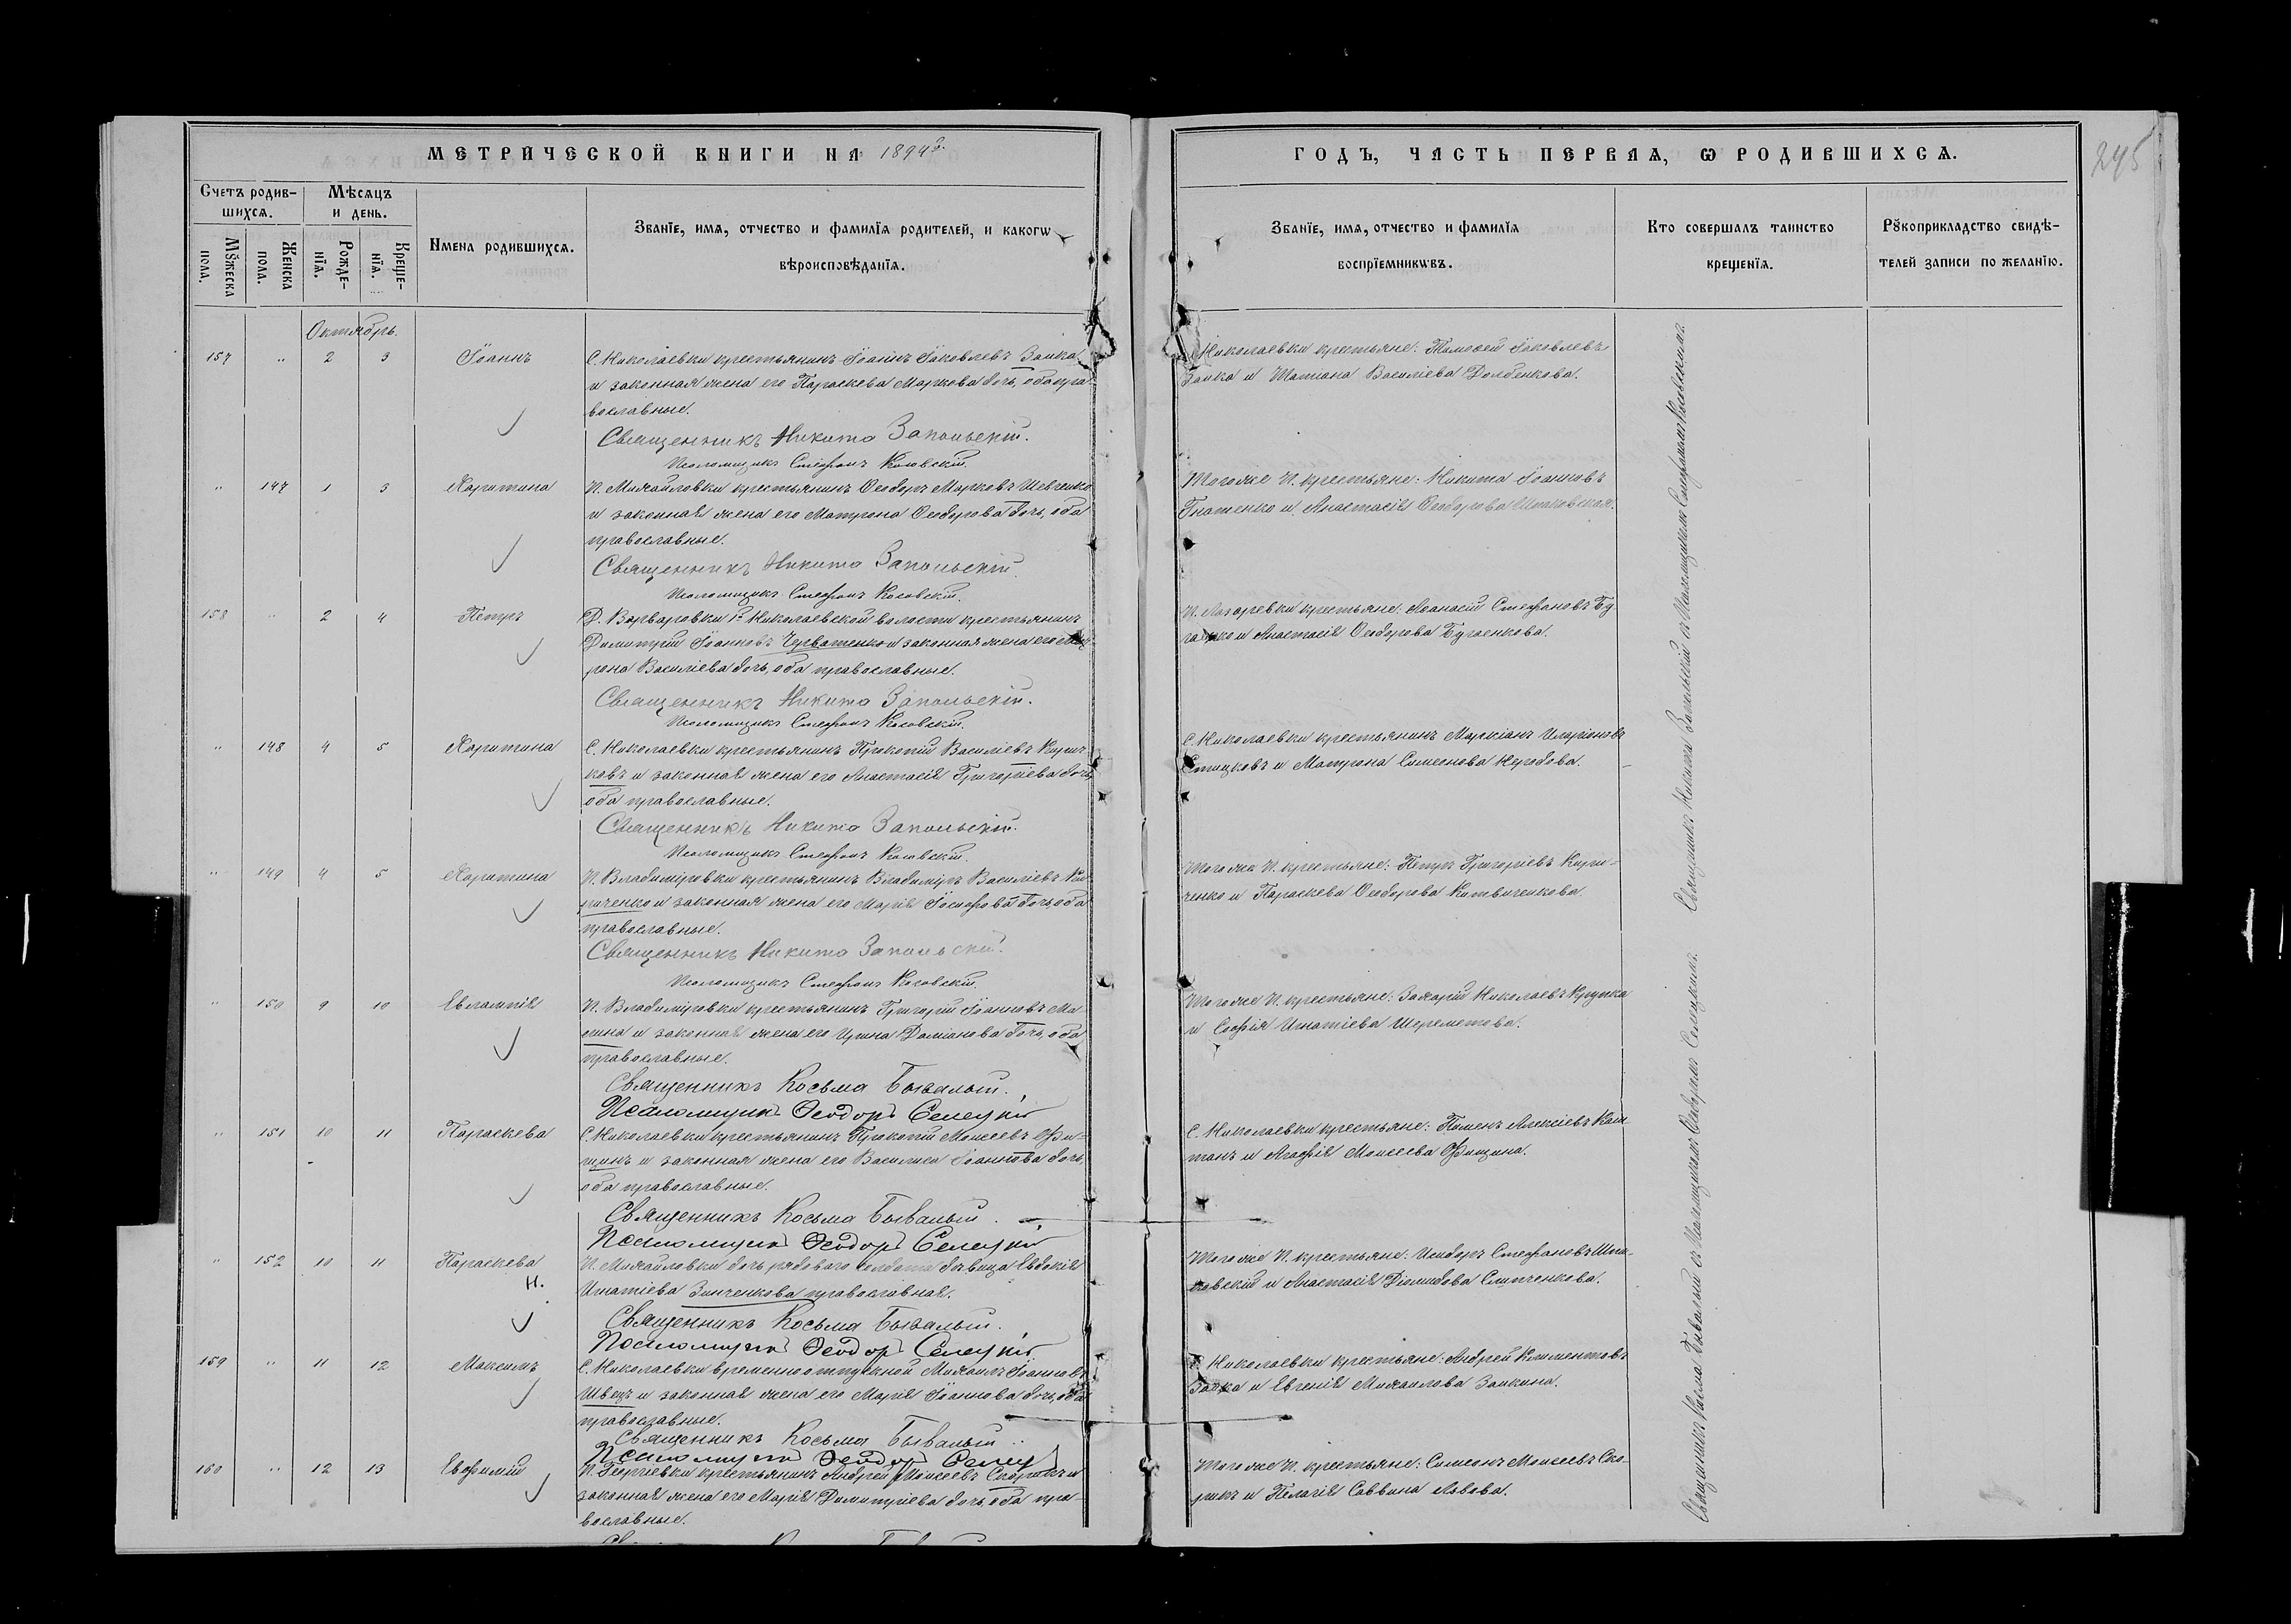 МЕТРИЧЕСКОЙ КНИГИ НА 1894й
ГОДЪ, ЧАСТЬ ПЕРВАЯ, Ѡ РОДИВШИХСЯ.
245
Счетъ родив-
шихся.
Мѣсяцъ
и день.
Мꙋжеска
пола.
Женска
пола.
Рожде-
нїя.
Креще-
нїя.
Имена родившихся.
Званїе, имя, отчество и фамилїя родителей, и какогѡ
вѣроисповѣданїя.
Званїе, имя, отчество и фамилїя
воспрїемникѡвъ.
Кто совершалъ таинство
крещенїя.
Рꙋкоприкладство свидѣ-
телей записи по желанїю.
Октябрь.
157 " 2 3 Іоаннъ
С. Николаевки крестьянинъ Іоаннъ Іаковлевъ Заика
и законная жена его Параскева Маркова дочь, оба пра
вославные.
Священникъ Никита Запольскій.
Псаломщикъ Стефанъ Косовскій.
Николаевки крестьяне: Тимофей Іаковлевъ
Заика и Татіана Василіева Долбенкова.
" 147 1 3 Харитина
П. Михайловки крестьянинъ Ѳеодоръ Марковъ Шевченко
и законная жена его Матрона Ѳеодорова дочь, оба
православные.
Священникъ Никита Запольскій
Псаломщикъ Стефанъ Косовскій.
Тогоже П. крестьяне: Никита Іоанновъ
Гнатенко и Анастасія Ѳеодорова
158 " 2 4 Петръ
Д. Варваровки 1й Николаевской волости крестьянинъ
Димитрій Іоанновъ Черватенко и законная жена его Мат
рона Василіева дочь, оба православные.
Священникъ Никита Запольскій.
Псаломщикъ Стефанъ Косовскій.
П. Лазаревки крестьяне: Аѳанасій Стефановъ
и Анастасія Ѳеодорова Бугаенкова.
" 148 4 5 Харитина
С. Николаевки крестьянинъ Прокопій Василіевъ Кирич-
ковъ и законная жена его Анастасія Григоріева дочь,
оба православные.
Священникъ Никита Запольскій.
Псаломщикъ Стефанъ Косовскій.
С. Николаевки крестьянинъ Маркіанъ Иларіоновъ
и Матрона Симеонова Неродова.
" 149 4 5 Харитина
П. Владиміровки крестьянинъ Владиміръ Василіевъ Ки-
риченко и законная жена его Марія Іосифова дочь, оба
православные.
Священникъ Никита Запольскій.
Псаломщикъ Стефанъ Косовскій.
Тогоже П. крестьяне: Петръ Григоріевъ Кири-
ченко и Параскева Ѳеодорова
" 150 9 10 Евлампія
П. Владиміровки крестьянинъ Григорій Іоанновъ Ма-
и законная жена его Ирина Даміанова дочь, оба
православные.
Священникъ Косьма Бывалый.
Псаломщикъ Ѳеодоръ Селецкій
Тогоже П. крестьяне: Захарій Николаевъ Крупка
и Софія Игнатіева Шереметова.
" 151 10 11 Параскева
С. Николаевки крестьянинъ Прокопій Моисеевъ Фи-
щинъ и законная жена его Василиса Іоаннова дочь,
оба православные.
Священникъ Косьма Бывалый.
Псаломщикъ Ѳеодоръ Селецкій
С. Николаевки крестьяне: Пименъ Алексіевъ Каш-
танъ и Агафія Моисеева Фищина.
" 152 10 11 Параскева
Н.
П. Михайловки дочь рядового солдата дѣвица Евдокія
Игнатіева Зинченкова православная.
Священникъ Косьма Бывалый.
Псаломщикъ Ѳеодоръ Селецкій
Тогоже П. крестьяне: Исидоръ Стефановъ
и Анастасія Діомидова Слипченкова.
159 " 11 12 Максимъ
С. Николаевки временноотпускной Михаилъ Іоанновъ
Швецъ и законная жена его Марія Іоаннова дочь, оба
православные.
Священникъ Косьма Бывалый.
Псаломщикъ Ѳеодоръ Селец
С. Николаевки крестьяне: Андрей Климентовъ
Заика и Евгенія Михаилова Заикина.
160 " 12 13 Евфимій
П. Георгіевки крестьянинъ Андрей Моисеевъ Скорикъ и
законная жена его Марія Димитріева дочь, оба пра-
вославные.
Тогоже П. крестьяне: Симеонъ Моисеевъ Ско-
рикъ и Пелагія Саввина Львова.
Священникъ Никита Запольскій съ Псаломщикомъ Стефаномъ Косовскимъ.
Священникъ Косма Бывалый съ Псаломщикомъ Ѳеодоромъ Селецкимъ.